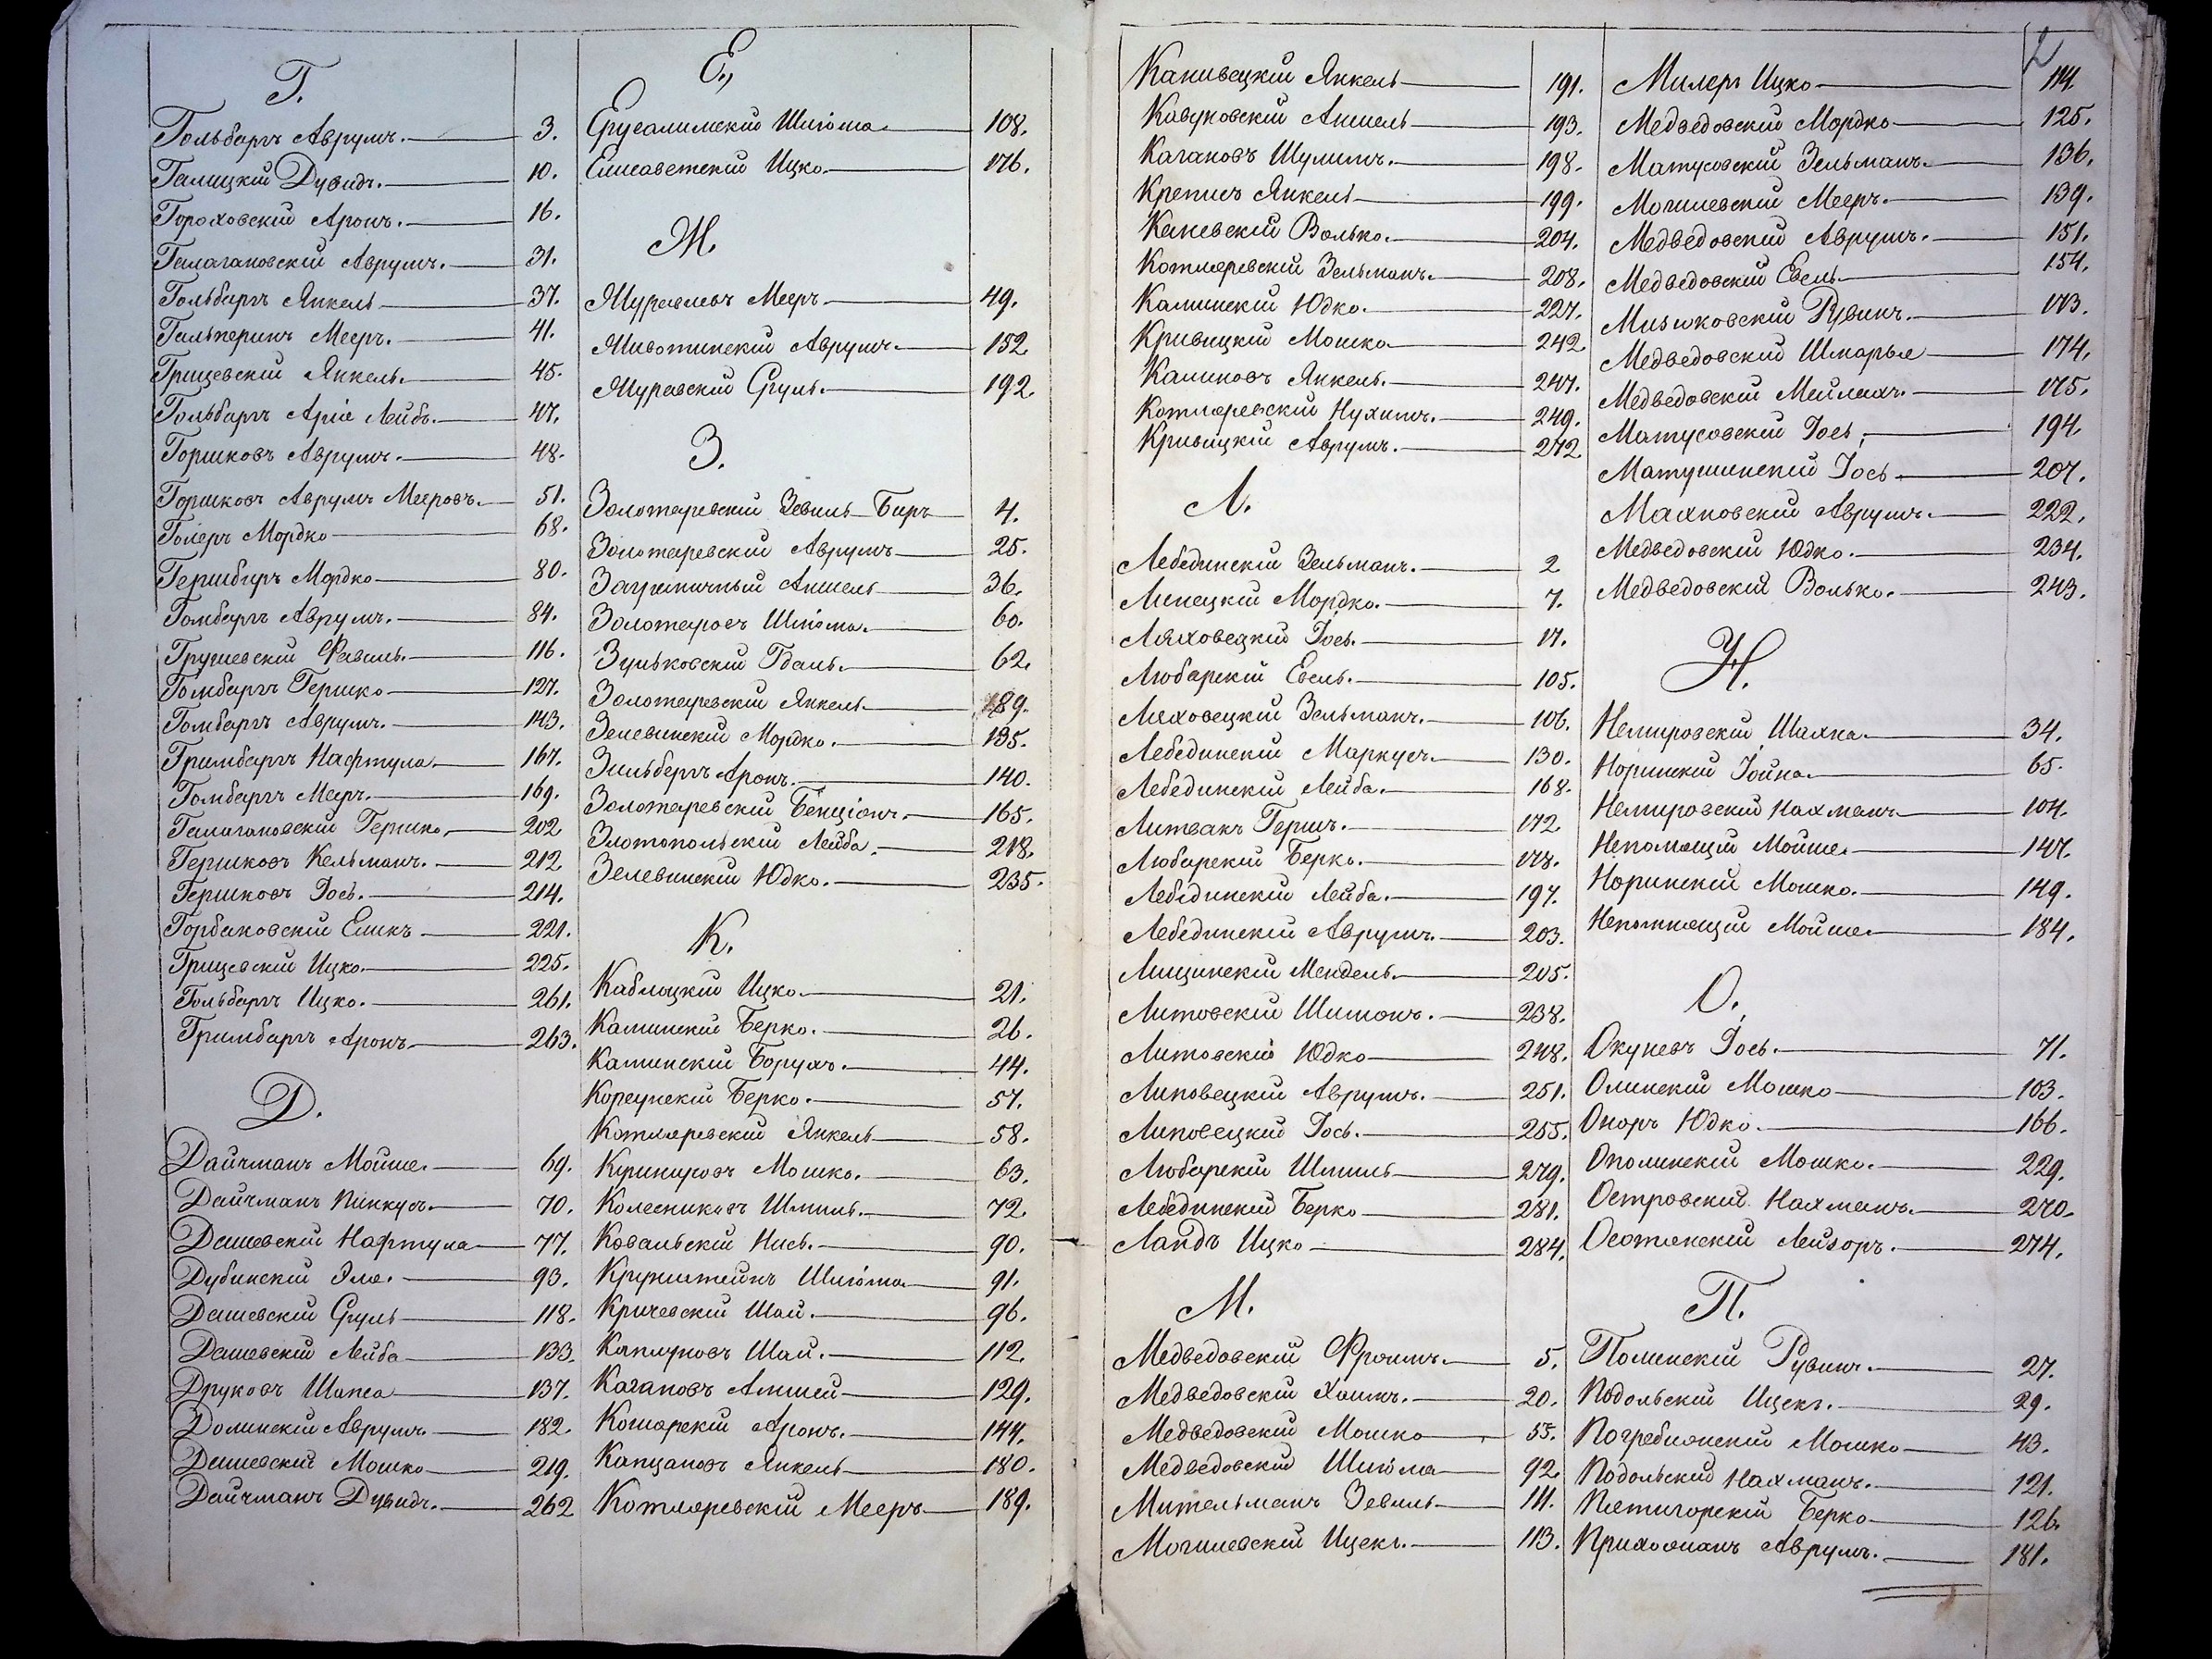 Г.
Гольбаргъ Аврумъ. 3.
Галицкій Дувидъ. 10.
Гороховскій Аронъ. 16.
Галагановскій Аврумъ. 31.
Гольбаргъ Янкель 37.
Гальперинъ Мееръ. 41.
Грищевскій Янкель. 45.
Гольбаргъ Аріе Лейбъ. 47.
Горшковъ Аврумъ. 48.
Горшковъ Аврумъ Мееровъ. 51.
Голеръ Мордко 68.
Гершбиръ Мордко 80.
Гомбаргъ Аврумъ. 84.
Грушевскій Файвель. 116.
Гомбаргъ Гершко 127.
Гомбаргъ Аврумъ. 143.
Гримбаргъ Нафтула. 167.
Гомбаргъ Мееръ. 169.
Галагановскій Гершко, 202
Гершковъ Кельманъ. 212
Гершковъ Іось. 214.
Горбаковскій Еликъ 221.
Грищевскій Ицко. 225.
Гольбаргъ Ицко. 261.
Гримбаргъ Аронъ. 263.
Д.
Дайчманъ Мойше. 69.
Дайчманъ Пинкусъ. 70.
Дашевскій Нафтула 77.
Дубинскій Эля. 93.
Дашевскій Сруль 118.
Дашевскій Лейба 133.
Друковъ Шапса 137.
Долинскій Аврумъ. 182.
Дашевскій Мошко 219.
Дайчманъ Дувидъ. 262
Е.
Ерусалимскій Шлёма 108.
Елисаветскій Ицко. 176.
Ж.
Журавлевъ Мееръ 49.
Животинскій Аврумъ. 152
Журавскій Сруль. 192.
З.
Золотаревскій Зевиль-Биръ 4.
Золотаревскій Аврумъ 25.
Заграничный Аншель 36.
Золотаровъ Шлёма. 60.
Зуньковскій Гдаль. 62.
Золотаревскій Янкель. 189.
Зелевинскій Мордко. 135.
Зильбергъ Аронъ. 140.
Золотаревскій Бенціонъ. 165.
Злотопольскій Лейба. 218.
Зелевинскій Юдко. 235.
К.
Каблуцкій Ицко. 21.
Калинскій Берко. 26.
Калинскій Борухъ. 44.
Корсунскій Берко. 57.
Котляревскій Янкель 58.
Кушнировъ Мошко. 63.
Колесниковъ Шмиль. 72.
Ковальскій Нись. 90.
Крупштейнъ Шлёма 91.
Кричевскій Шай. 96.
Каплуновъ Шай. 112.
Кагановъ Аншей 129.
Кошарскій Аронъ. 144.
Капцановъ Янкель 180.
Котляревскій Мееръ 189.
2
Канивецкій Янкель 191.
Кавуковскій Аншель 193.
Кагановъ Шулимъ. 198.
Крепичъ Янкель 199.
Каневскій Волько. 204.
Котляревскій Зельманъ. 208.
Калинскій Юдко. 227.
Кривицкій Мошко 242
Калиновъ Янкель. 247.
Котляревскій Нухимъ. 249.
Кривицкій Аврумъ. 272
Л.
Лебединскій Зельманъ. 2
Липецкій Мордко. 7.
Ляховецкій Іось. 17.
Любарскій Евель. 105.
Ляховецкій Зельманъ. 106.
Лебединскій Маркусъ. 130.
Лебединскій Лейба. 168.
Литвакъ Гершъ. 172
Любарскій Берко. 178.
Лебединскій Лейба. 197.
Лебединскій Аврумъ. 203.
Лищинскій Мендель. 205.
Литовскій Шимонъ. 238.
Литовскій Юдко 248.
Липовецкій Аврумъ. 251.
Липовецкій Іось. 255.
Любарскій Шмиль 279.
Лебединскій Берко 281.
Ландъ Ицко 284.
М.
Медведовскій Фроимъ. 5.
Медведовскій Хаимъ. 20.
Медведовскій Мошко 55.
Медведовскій Шлёма 92.
Мительманъ Зевиль 111.
Могилевскій Ицекъ. 113.
Милеръ Ицко 114
Медведовскій Мордко 125.
Матусовскій Зельманъ. 136.
Могилевскій Мееръ. 139.
Медведовскій Аврумъ. 151.
Медведовскій Евель 154.
Мизяковскій Рувинъ. 173.
Медведовскій Шмарья 174.
Медведовскій Мейлахъ. 175.
Матусовскій Іось. 194.
Матушинскій Іось 207.
Махновскій Аврумъ. 222.
Медведовскій Юдко. 234.
Медведовскій Волько. 243.
Н.
Немировскій Шахна. 34.
Норинскій Іойна. 65.
Немировскій Нахманъ. 104.
Непомящій Мойше. 147.
Норинскій Мошко. 149.
Непомнящій Мойше. 184.
О.
Окуневъ Іось. 71.
Олинскій Мошко 103.
Оноръ Юдко. 166.
Ополинскій Мошко. 229.
Островскій Нахманъ. 270.
Осотянскій Лейзоръ. 274.
П.
Полинскій Рувинъ. 27.
Подольскій Ицекъ. 29.
Погребижскій Мошко 43.
Подольскій Нахманъ. 121.
Пятигорскій Берко 126.
Прихожанъ Аврумъ. 181.